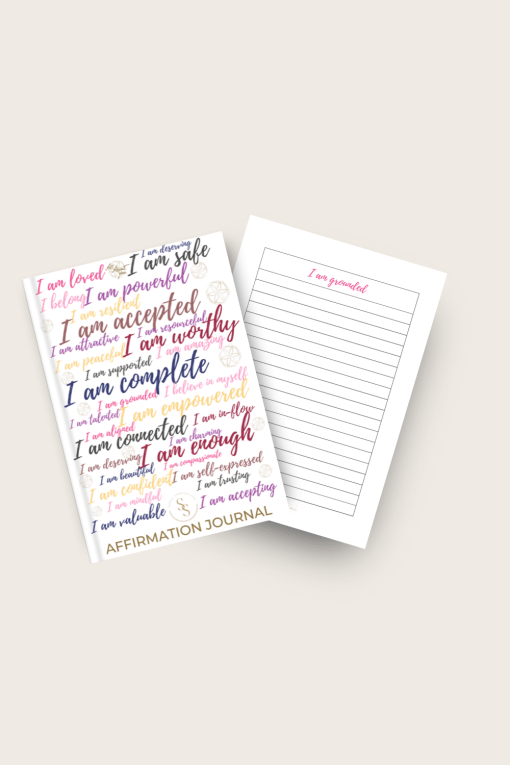 I am deserving
I am safe
I am loved
I am powerful
I belong
I am resilient
I am accepted
I am resourceful
I am attractive
I am worthy
I am peaceful
I am amazing
I am supported
I am complete
I am grounded
I believe in myself
I am talented
I am empowered
I am in-flow
I am aligned
I am connected
I am charming
I am enough
I am deserving
I am compassionate
I am beautiful
I am self-expressed
I am confident
I am trusting
I am mindful
I am accepting
I am valuable
AFFIRMATION JOURNAL
I am grounded